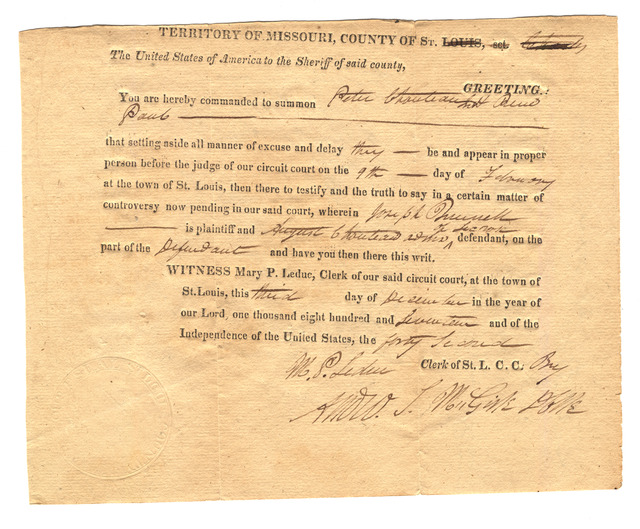 TERRITORY OF MISSOURI, COUNTY OF ST. LOUIS, sct.
The United States of America to the Sheriff of said county,
GREETING:
You are hereby commanded to summon Peter Chouteau
Paul
that setting aside all manner of excuse and delay they be and appear in proper
person before the judge of our circuit court on the 9th day of February
at the town of St. Louis, then there to testify and the truth to say in a certain matter of
controversy now pending in our said court, wherein Joseph
is plaintiff and August Chouteau defendant, on the
part of the Defendant and have you then there this writ.
WITNESS Mary P. Leduc, Clerk of our said circuit court, at the town of
St. Louis, this third day of December in the year of
our Lord, one thousand eight hundred and seventeen and of the
Independence of the United States, the forty second
M. P. Leduc Clerk of St. L. C. C. By